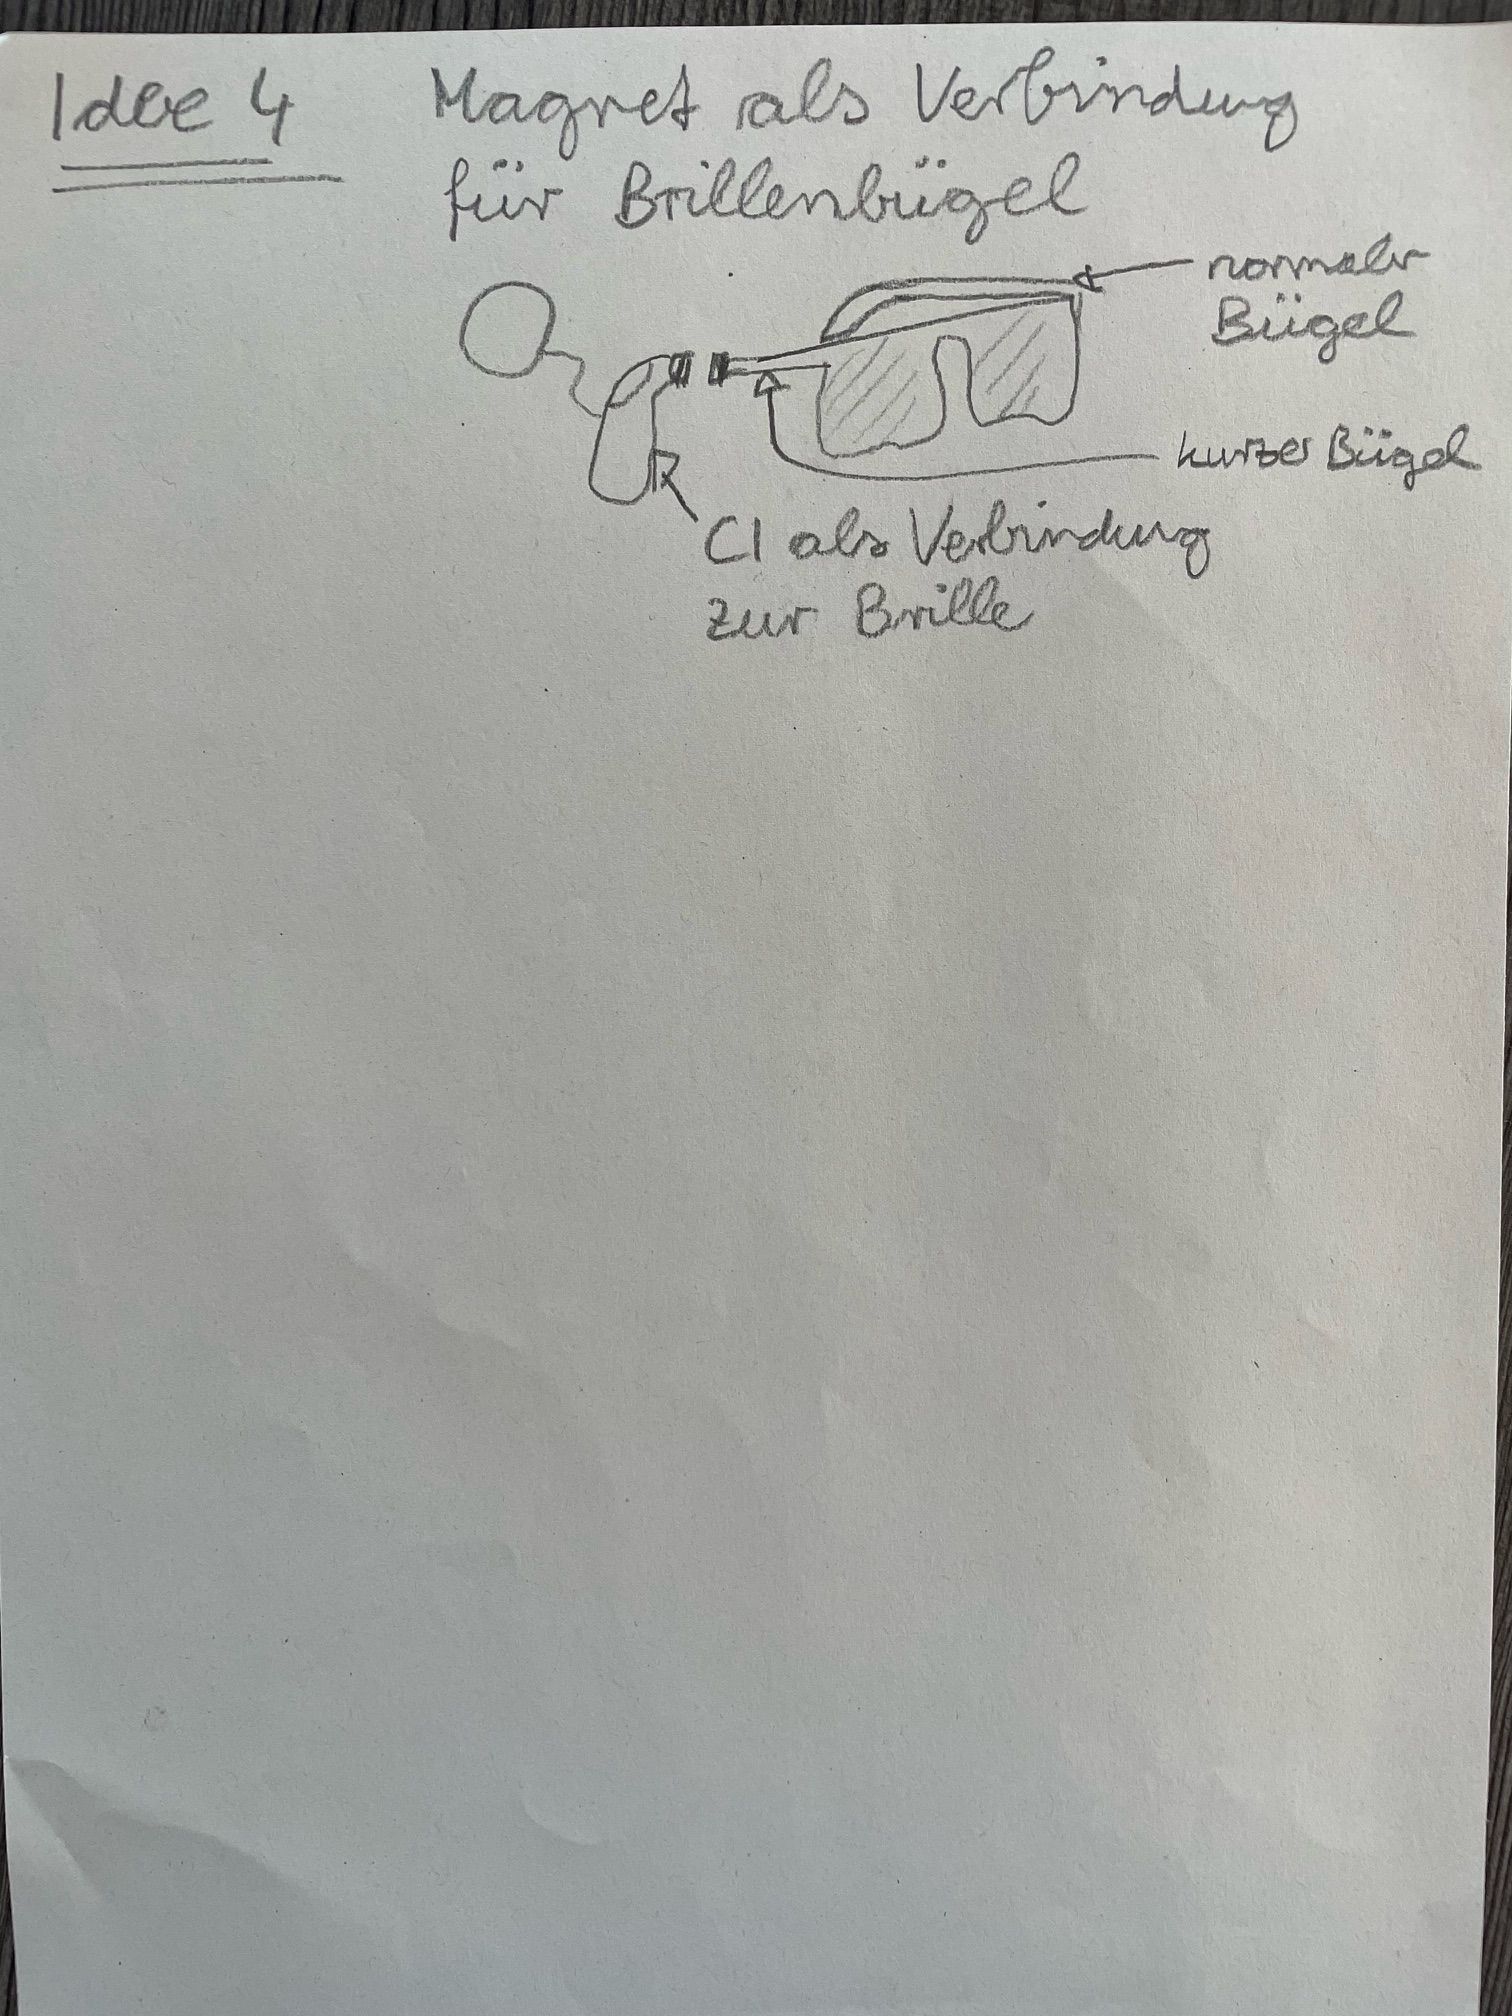 Idee 4
Magnet als Verbindung
für Brillenbügel
normaler
Bügel
kurzer Bügel
CI als Verbindung
zur Brille